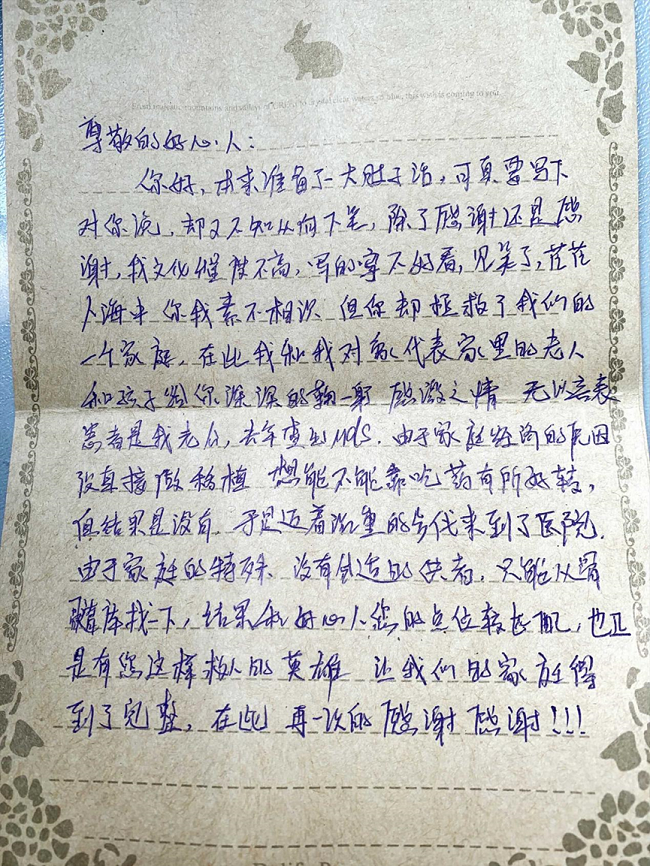 尊敬的好心人：
你好，本来准备了一大肚子话，可真要写下
对你说，却又不知从何下笔，除了感谢还是感
谢，我文化程度不高，写的字不好看，见笑了，茫茫
人海中 你我素不相识 但你却拯救了我们的
一个家庭，在此我和我对象代表家里的老人
和孩子给你深深的鞠一躬 感激之情 无以言表
患者是我老公，去年查出mds，由于家庭经济的原因
没直接做移植 想能不能靠吃药有所好转，
但结果是没有，于是迈着沉重的步伐来到了医院，
由于家庭的特殊，没有合适的供者，只能从骨
髓库找一下，结果和好心人您的点位较匹配，也正
是有您这样救人的英雄 让我们的家庭得
到了完整，在此 再一次的感谢 感谢!!!